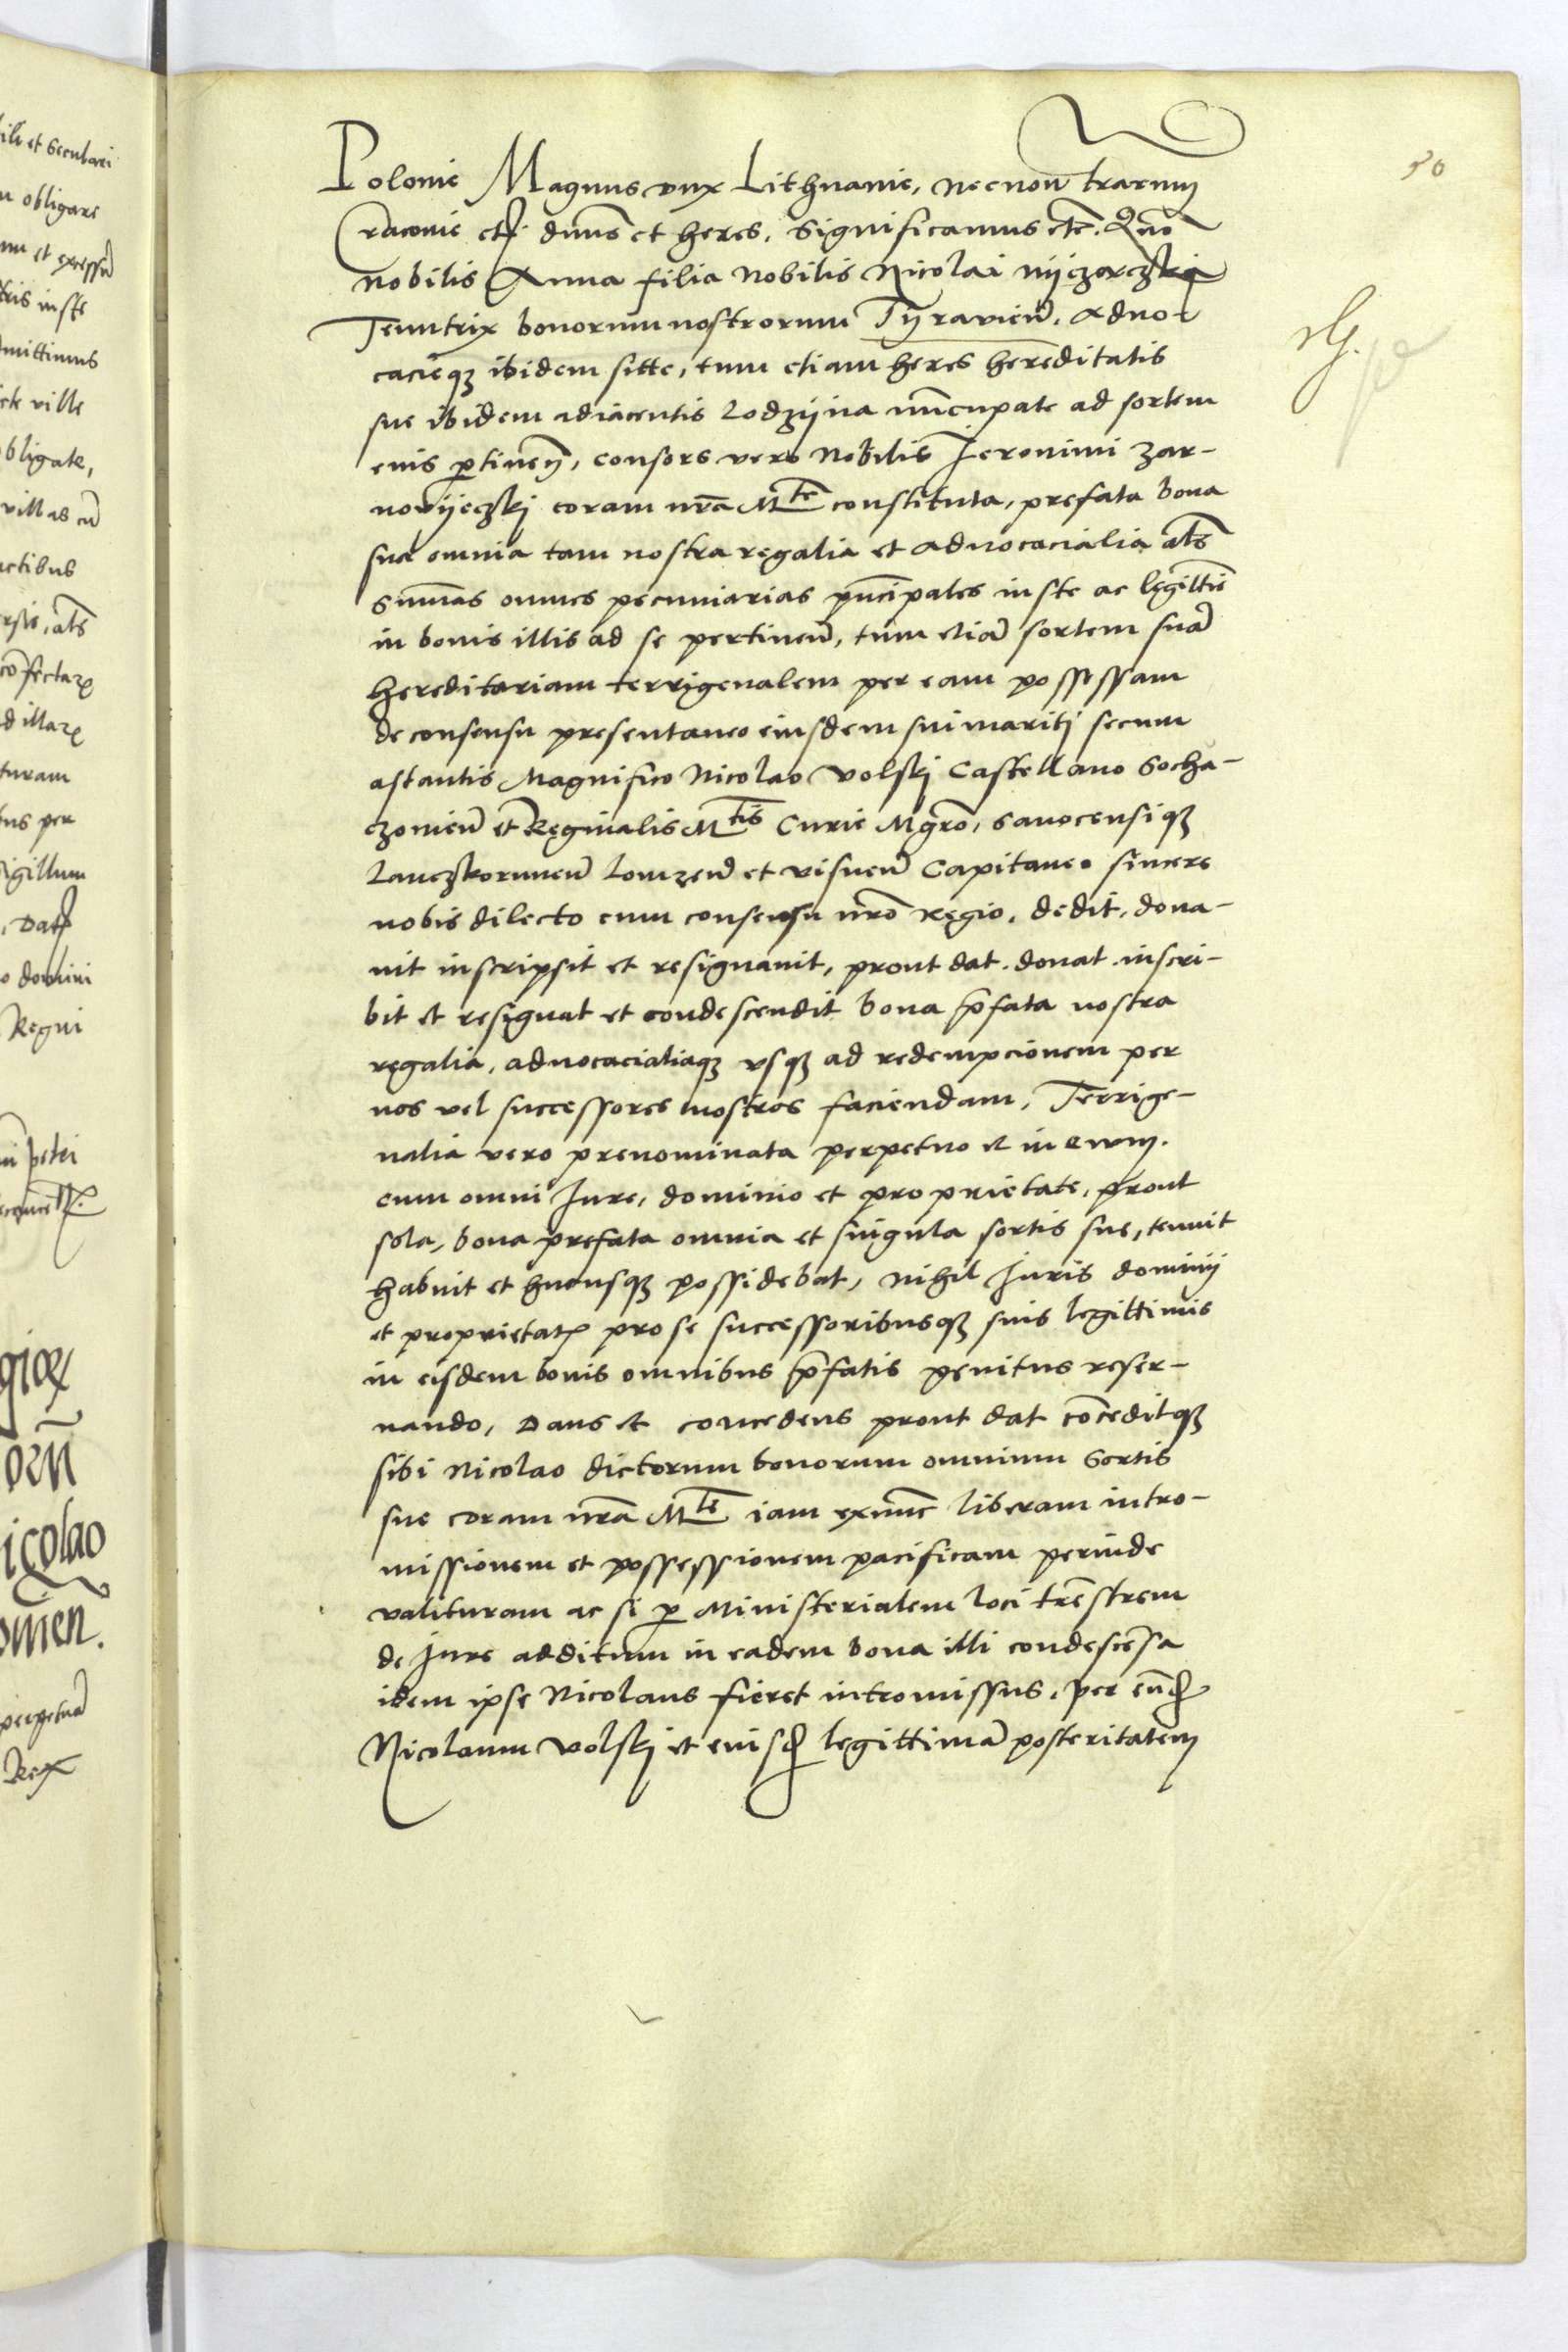 50
Polonie Magnus dux Lithuanie, necnon trarum
Cracouie etc. dnus et heres, Significamus etc. Quo
nobilis Anna filia Nobilis Nicolai
Tenutrix bonorum nostrorum Tyravien, aduo-
cacieqz ibidem sitte, tum etiam heres hereditatis
sue ibidem adiacentis Lodzyna nuncupate ad sortem
eius ptinen, consors vero Nobilis Jeronimi Zar-
novyeczkj coram nra Mte constituta, prefata bona
sua omnia tam nostra regalia et aduocacialia als
summas omnes pecuniarias pncipales iuste ac legittie
in bonis illis ad se pertinen, tum etia sortem sua
hereditariam terrigenalem per eam possessam
de consensu presentaneo eiusdem sui maritj secum
astantis Magnifico Nicolao Volskj Castellano Socha-
czouien et Reginalis Mtis Curie Mgro, Sanocensiqz
Lanczkorunen Lomzen et Visnen Capitaneo sincere
nobis dilecto cum consensu nro Regio, dedit, dona-
uit inscripsit et resignauit, prout dat. donat. inscri-
bit et resignat et condescendit bona pfata nostra
regalia, aduocacialiaqz vsqz ad redempcionem per
nos vel successores nostros faciendam, Terrige-
nalia vero prenominata perpetuo et in ewm.
cum omni Jure, dominio et proprietate, prout
sola, bona prefata omnia et singula sortis sue, tenuit
habuit et hucusqz possidebat, nihil Juris dominij
et proprietatis pro se successoribusqz suis legittimis
in eisdem bonis omnibus pfatis penitus reser-
uando, Dans et concedens prout dat conceditqz
sibi Nicolao dictorum bonorum omnium Sortis
sue coram nra Mte iam exnunc liberam intro-
missionem et possessionem pacificam perinde
valituram ac si p Ministerialem loci trestrem
de Jure additum in eadem bona illi condescensa
idem ipse Nicolaus fieret intromissus, per eund
Nicolaum Volskj et eiusd legittima posteritatem